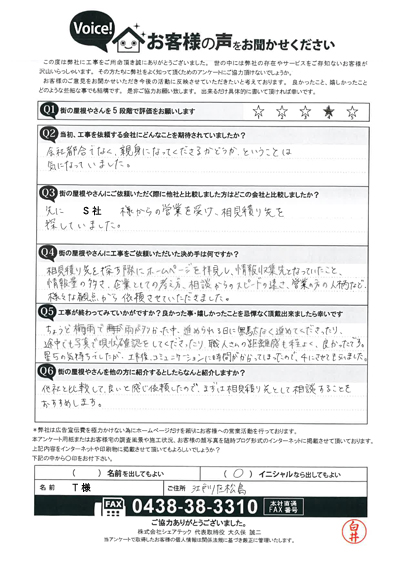 Voice!
お客様の声をお聞かせください
この度は弊社に工事をご用命頂き誠にありがとうございました。世の中には弊社の存在やサービスをご存知ないお客様が
沢山いらっしゃいます。その方たちに弊社をよく知って頂くためのアンケートにご協力頂けないでしょうか。
お客様のご意見をお聞かせいただき今後の活動に反映させていただきたいと考えております。良かったこと、嬉しかったこと
どのような些細な事でも結構です。是非ご協力お願い致します。出来るだけ具体的に書いて頂ければ幸いです。
Q1 街の屋根やさんを5段階で評価をお願いします ☆ ☆ ☆ ★ ☆
Q2 当初、工事を依頼する会社にどんなことを期待されていましたか?
会社都合でなく、親身になってくださるかどうか、ということは
気になっていました。
Q3 街の屋根やさんにご依頼いただく際に他社と比較しました方はどこの会社と比較しましたか?
先に S社 様からの営業を受け、相見積り先を
探していました。
Q4 街の屋根やさんに工事をご依頼いただいた決め手は何ですか?
相見積り先を探す際にホームページを拝見し、情報収集先となっていたこと、
情報量の多さ、企業としての考え方、相談からのスピードの速さ、営業の方の人柄など、
様々な観点から依頼させていただきました。
Q5 工事が終わってみていかがですか?良かった事・嬉しかったことを忌憚なく頂戴出来ましたら幸いです
ちょうど梅雨で雨がふるか、た中、進められる日に無駄なく進めてくださったり、
途中でも写真で現状確認をしてくださったり、職人さんの距離感も程よく、良かったです。
星5の気持ちでしたが、工事後、コミュニケーションに時間がかかってしまったので、4にさせてもらいました。
Q6 街の屋根やさんを他の方に紹介するとしたらなんと紹介しますか?
他社と比較して、良いと感じ依頼したので、まずは相見積り先として相談することを
おすすめします。
※弊社は広告宣伝費を極力かけない為にホームページだけを頼りにお客様への営業活動を行っております。
本アンケート用紙またはお客様宅の調査画像や施工状況、お客様の顔写真を随時ブログ形式のインターネットに掲載させて頂いております。
上記内容をインターネットや印刷物に掲載させて頂いてもよろしいでしょうか?
下記の中から〇印をお付下さい。
( ) 名前を出してもよい ( 〇 ) イニシャルなら出してもよい
名前 T様 ご住所 江戸川区松島
FAX 0438-38-3310 本社直通 FAX番号
ご協力ありがとうございました。
株式会社シェアテック 代表取締役 大久保 誠二
当アンケートで取得したお客様の個人情報は関係法規に基づき厳正に管理いたします。
白井